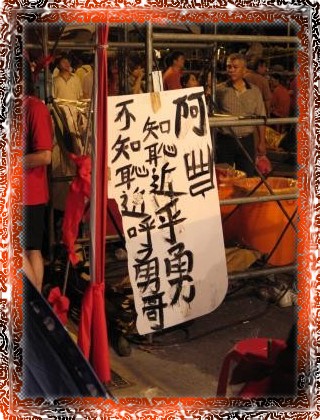 阿
知恥近乎勇
不知恥近呼勇哥